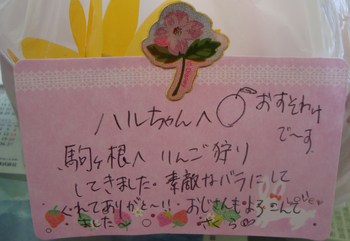 ハルちゃんへ おすそわけ
で〜す
駒ヶ根へ りんご狩り
してきました。素敵なバラにして
くれてありがと〜!! おじさんもよろこんで
ました〜 さくら